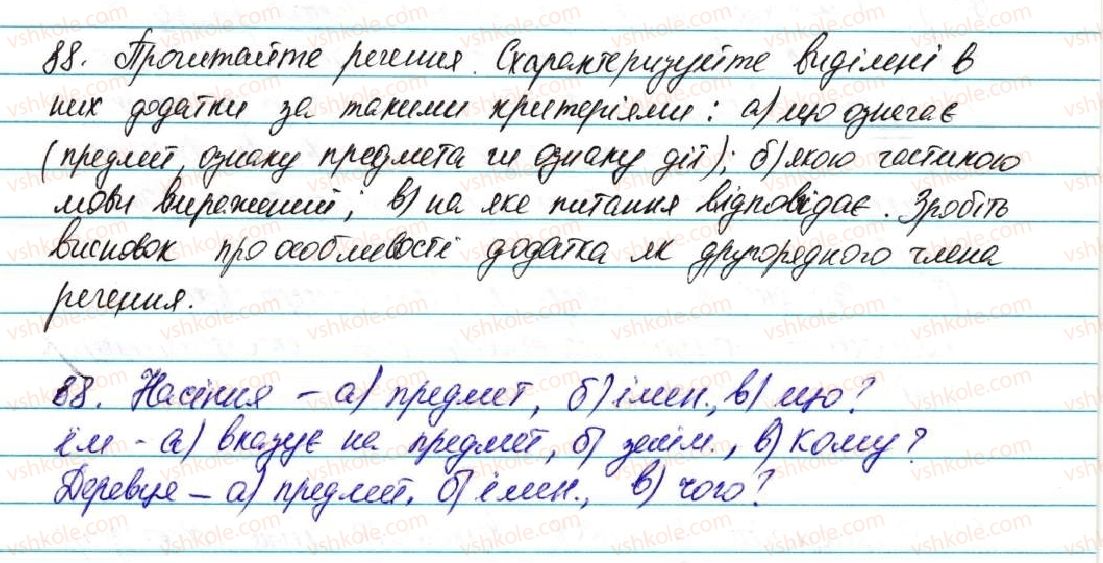 88. Прочитайте речення. Схарактеризуйте виділені в
них додатки за такими критеріями: а) що означає
(предмет, ознаку предмета чи ознаку дії); б) якою частиною
мови виражений; в) на яке питання відповідає. Зробіть
висновок про особливості додатка як другорядного члена
речення.
88. Насіння – а) предмет, б) імен., в) що?
їм – а) вказує на предмет, б) займ., в) кому?
Деревце – а) предмет, б) імен., в) чого?
vshkole.com